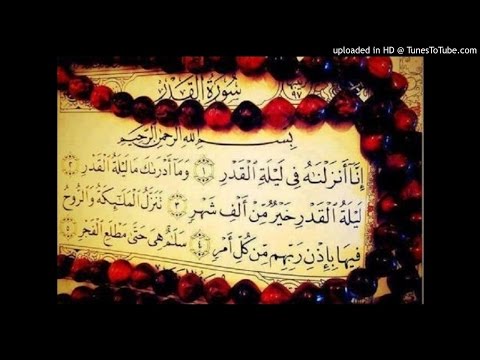 uploaded in HD @ TunesToTube.com
سُورَةُ الْقَدْرِ
٩٧
بِسْمِ اللَّهِ الرَّحْمَٰنِ الرَّحِيمِ
إِنَّا أَنزَلْنَـٰهُ فِى لَيْلَةِ ٱلْقَدْرِ ١ وَمَآ أَدْرَىٰكَ مَا لَيْلَةُ ٱلْقَدْرِ ٢
لَيْلَةُ ٱلْقَدْرِ خَيْرٌ مِّنْ أَلْفِ شَهْرٍ ٣ تَنَزَّلُ ٱلْمَلَـٰٓئِكَةُ وَٱلرُّوحُ
فِيهَا بِإِذْنِ رَبِّهِم مِّن كُلِّ أَمْرٍ ٤ سَلَـٰمٌ هِىَ حَتَّىٰ مَطْلَعِ ٱلْفَجْرِ ٥